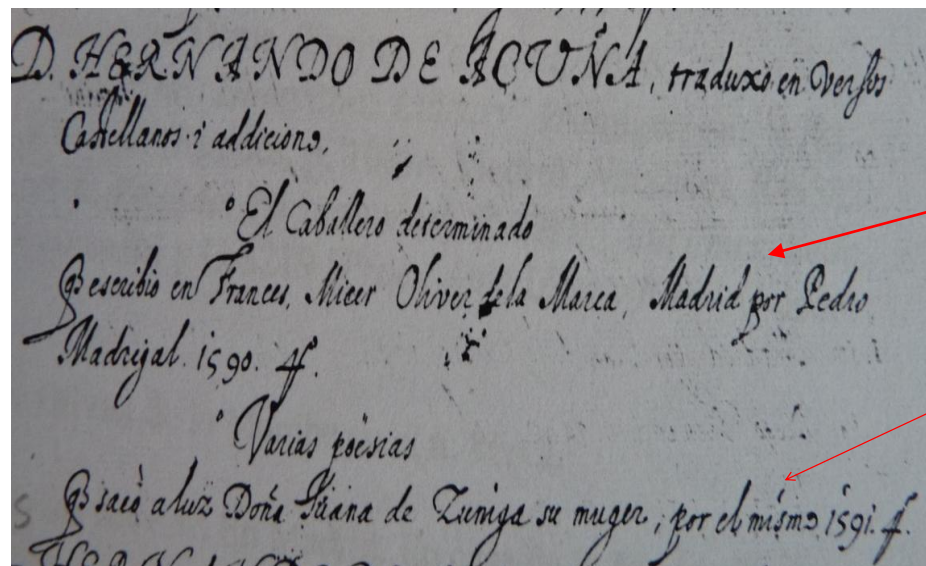 D. HERNANDO DE ACUÑA, traduxo en versos
Castellanos i addicionò,
° El Caballero determinado
escribio en Frances, Micer Oliver de la Marca, Madrid por Pedro
Madrigal. 1590. 4º.
° Varias poësias
sacò a luz Doña Iuana de Zuniga su muger, por el mismo 1591. 4º.